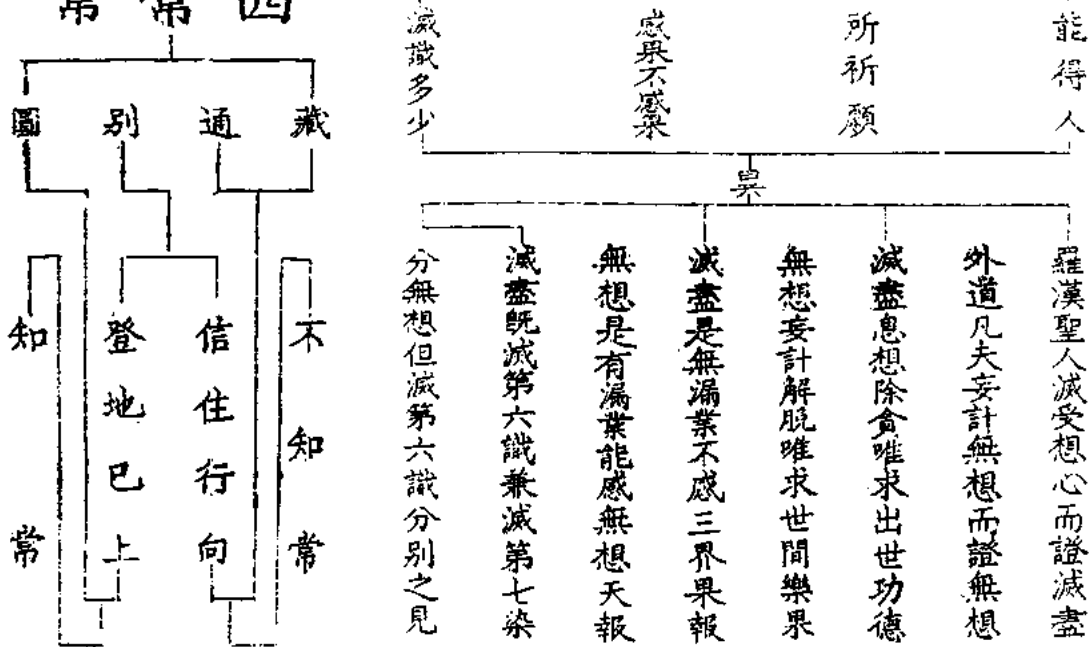 能得人
所祈願
感果不感果
滅識多少
異
羅漢聖人滅受想心而證滅盡
外道凡夫妄計無想而證無想
滅盡息想除貪唯求出世功德
無想妄計解脫唯求世間樂果
滅盡是無漏業不感三界果報
無想是有漏業能感無想天報
滅盡既滅第六識兼滅第七染
分無想但滅第六識分別之見
四
常
藏
通
別
圓
不知常
信住行向
登地已上
知常